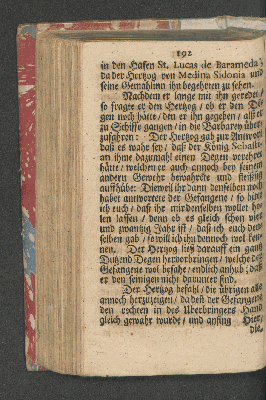 192
in den Hafen St. Lucas de Barameda
da der Hertzog von Medina Sidonia und
seine Gemahlinn ihn begehrten zu sehen.
Nachdem er lange mit ihn geredet /
so fragte er den Hertzog / ob er den De-
gen noch hätte / den er ihn gegeben / als er
zu Schiffe gangen / in die Barbarey über-
zufahren: Der Hertzog gab zur Antwort
daß es wahr sey / daß der König Sebasti-
an ihme dazumahl einen Degen verehret
hätte / welchen er auch annoch bey seinem
andern Gewehr bewahrete und fleißig
auffhübe: Dieweil ihr dann denselben noch
habet antwortete der Gefangene / so bitte
ich euch / daß ihr mir denselben wollet ho-
len lassen / denn ob es gleich schon vier
und zwantzig Jahr ist / daß ich euch den-
selben gab / so will ich ihn dennoch wol ken-
nen. Der Hertzog ließ darauff ein gantz
Dutzend Degen hervorbringen / welche der
Gefangene wol besahe / endlich anhub: daß
er den seinigen nicht darunter find.
Der Hertzog befahl / die übrigen alle
annoch herzuzeigen / da denn der Gefangene
den rechten in des Uberbringers Hand
gleich gewahr wurde / und anfing Hier /
die